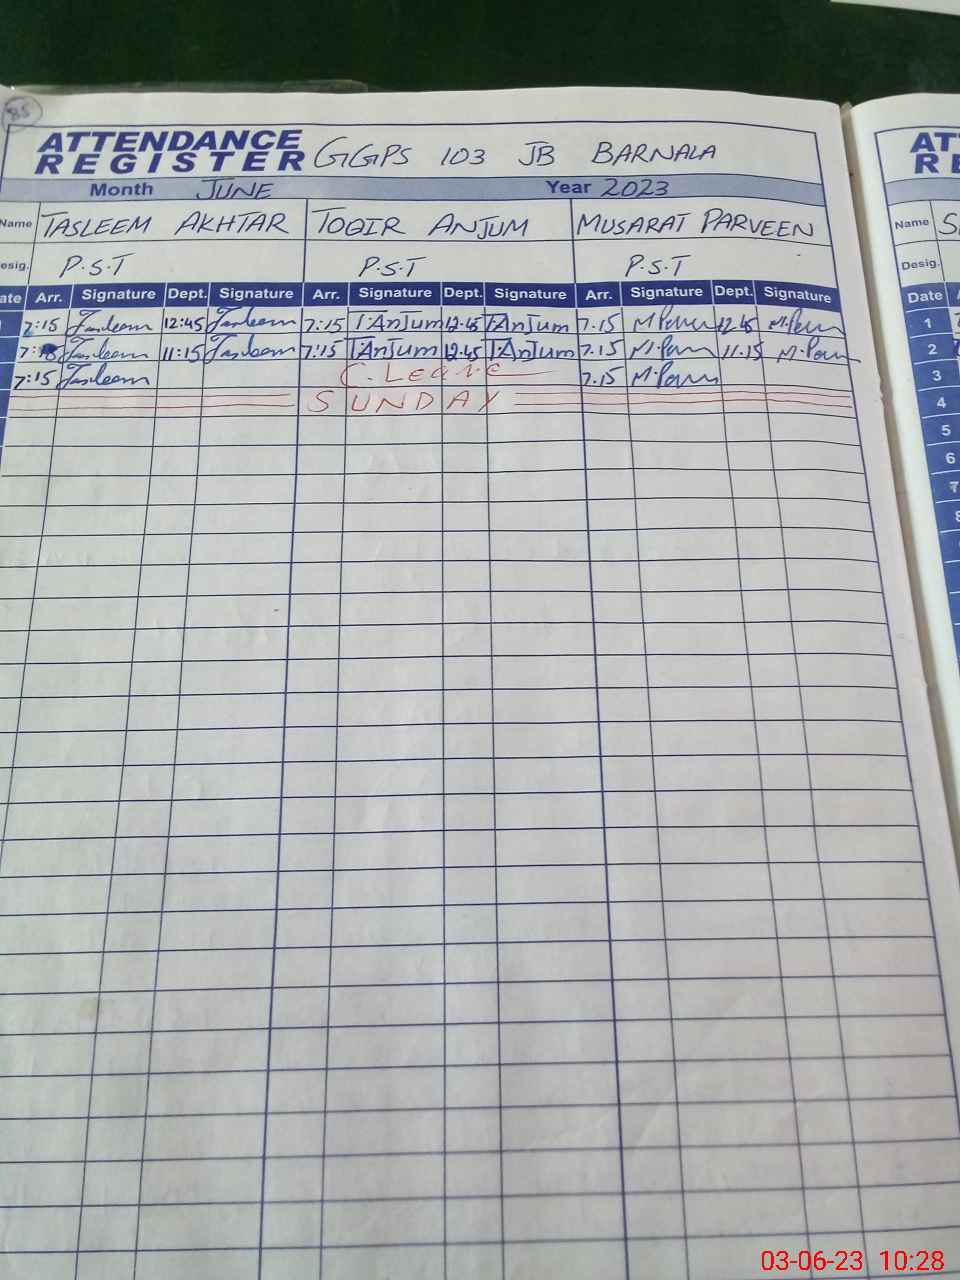 85
ATTENDANCE REGISTER GGPS 103 JB BARNALA
Month JUNE Year 2023
Name TASLEEM AKHTAR TOQIR ANJUM MUSARAT PARVEEN
Desig. P.S.T P.S.T P.S.T
Date Arr. Signature Dept. Signature Arr. Signature Dept. Signature Arr. Signature Dept. Signature
1 7:15 Tasleem 12:45 Tasleem 7:15 TAnjum 12.45 TAnjum 7.15 M.Parv 12.45 M.Parv
7:15 Tasleem 11:15 Tasleem 7:15 TAnjum 12.45 TAnjum 7.15 M.Parv 11.15 M.Parv
7:15 Tasleem C. Leave 7.15 M.Parv
SUNDAY
AT
RE
Name S
Desig.
Date
1
2
3
4
5
6
7
8
03-06-23 10:28